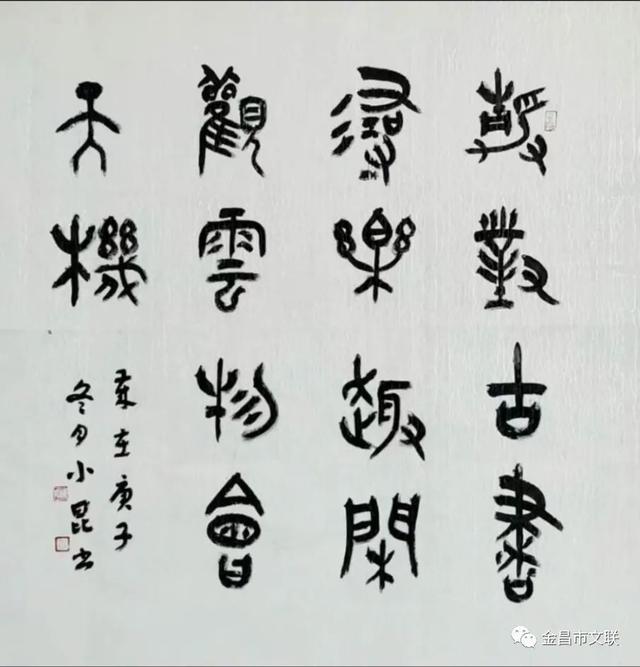 靜對古書
尋樂趣閑
觀雲物會
天機
歲在庚子
冬月小昆书
金昌市文联